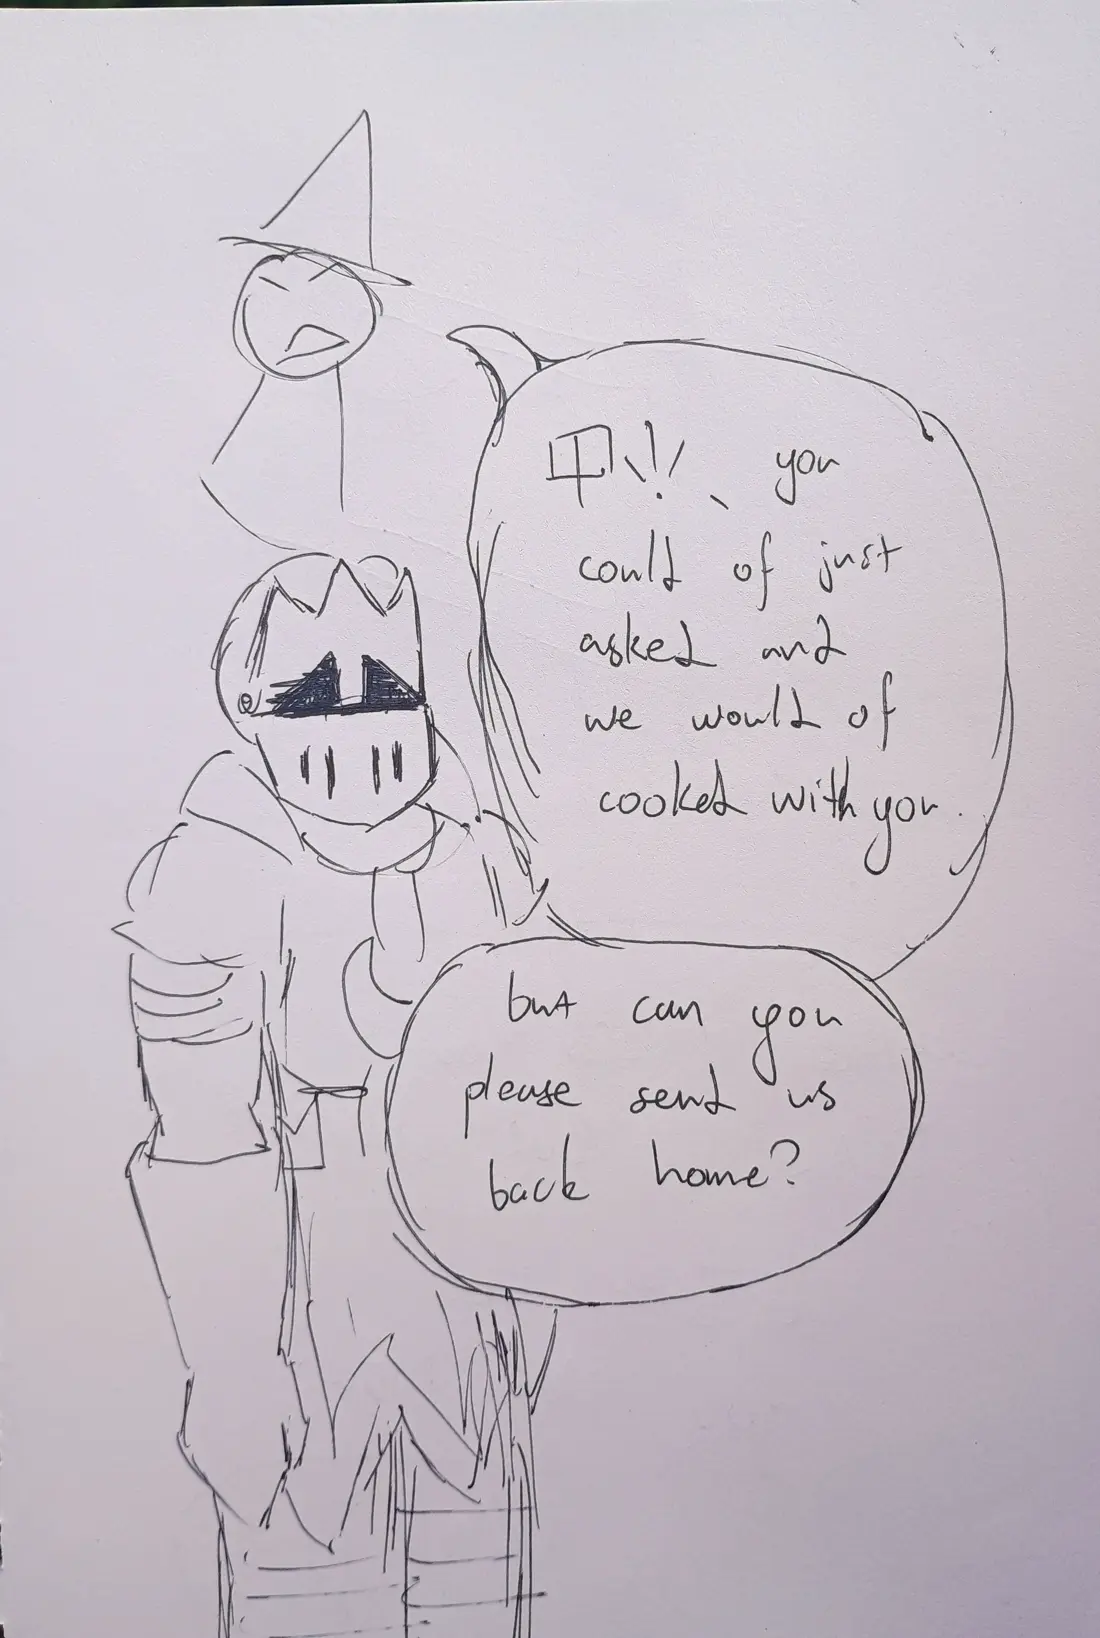 you
could of just
asked and
we would of
cooked with you.
but can you
please send us
back home?